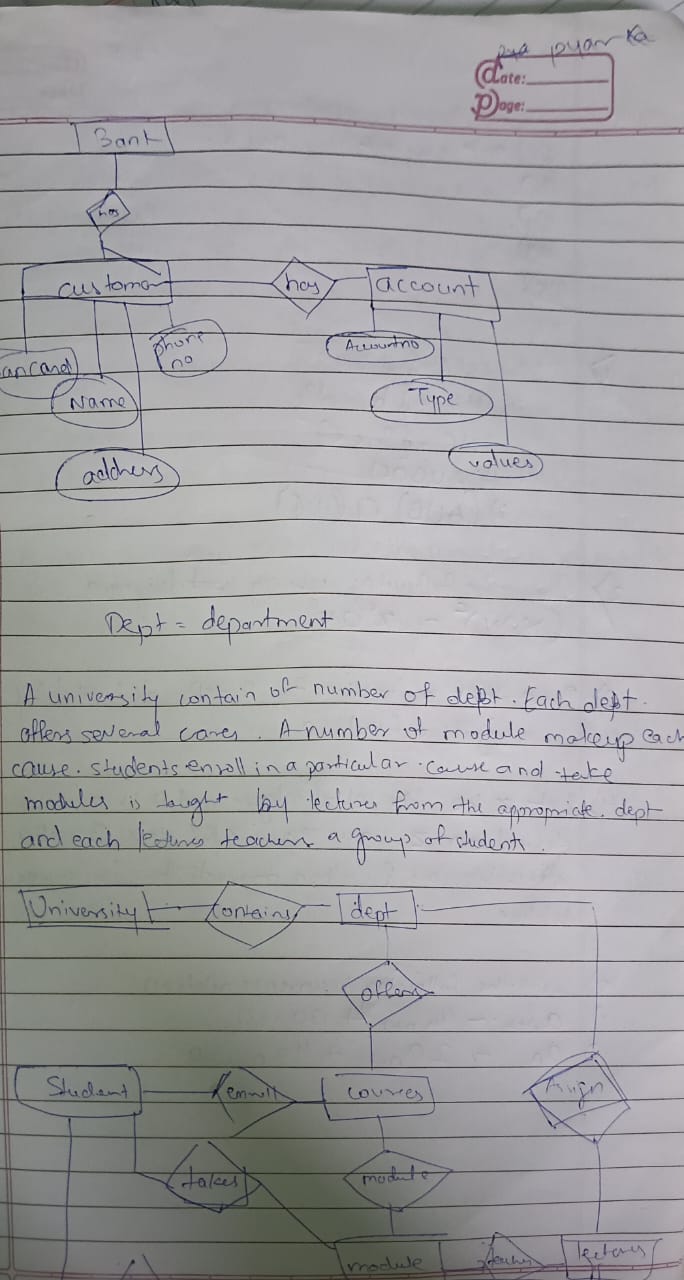 pyar ka
Date:
Page:
Bank
has
customer has account
phone no
Accountno
Name
Type
address
values
Dept = department
A university contain of number of dept. Each dept.
offers several cares. A number of module makeup each
cause. students enroll in a particular cause and take
modules is taught by lectures from the appropriate. dept
and each lectures teachers a group of students.
University contains dept
offers
Student enroll courses
takes module
module lectures